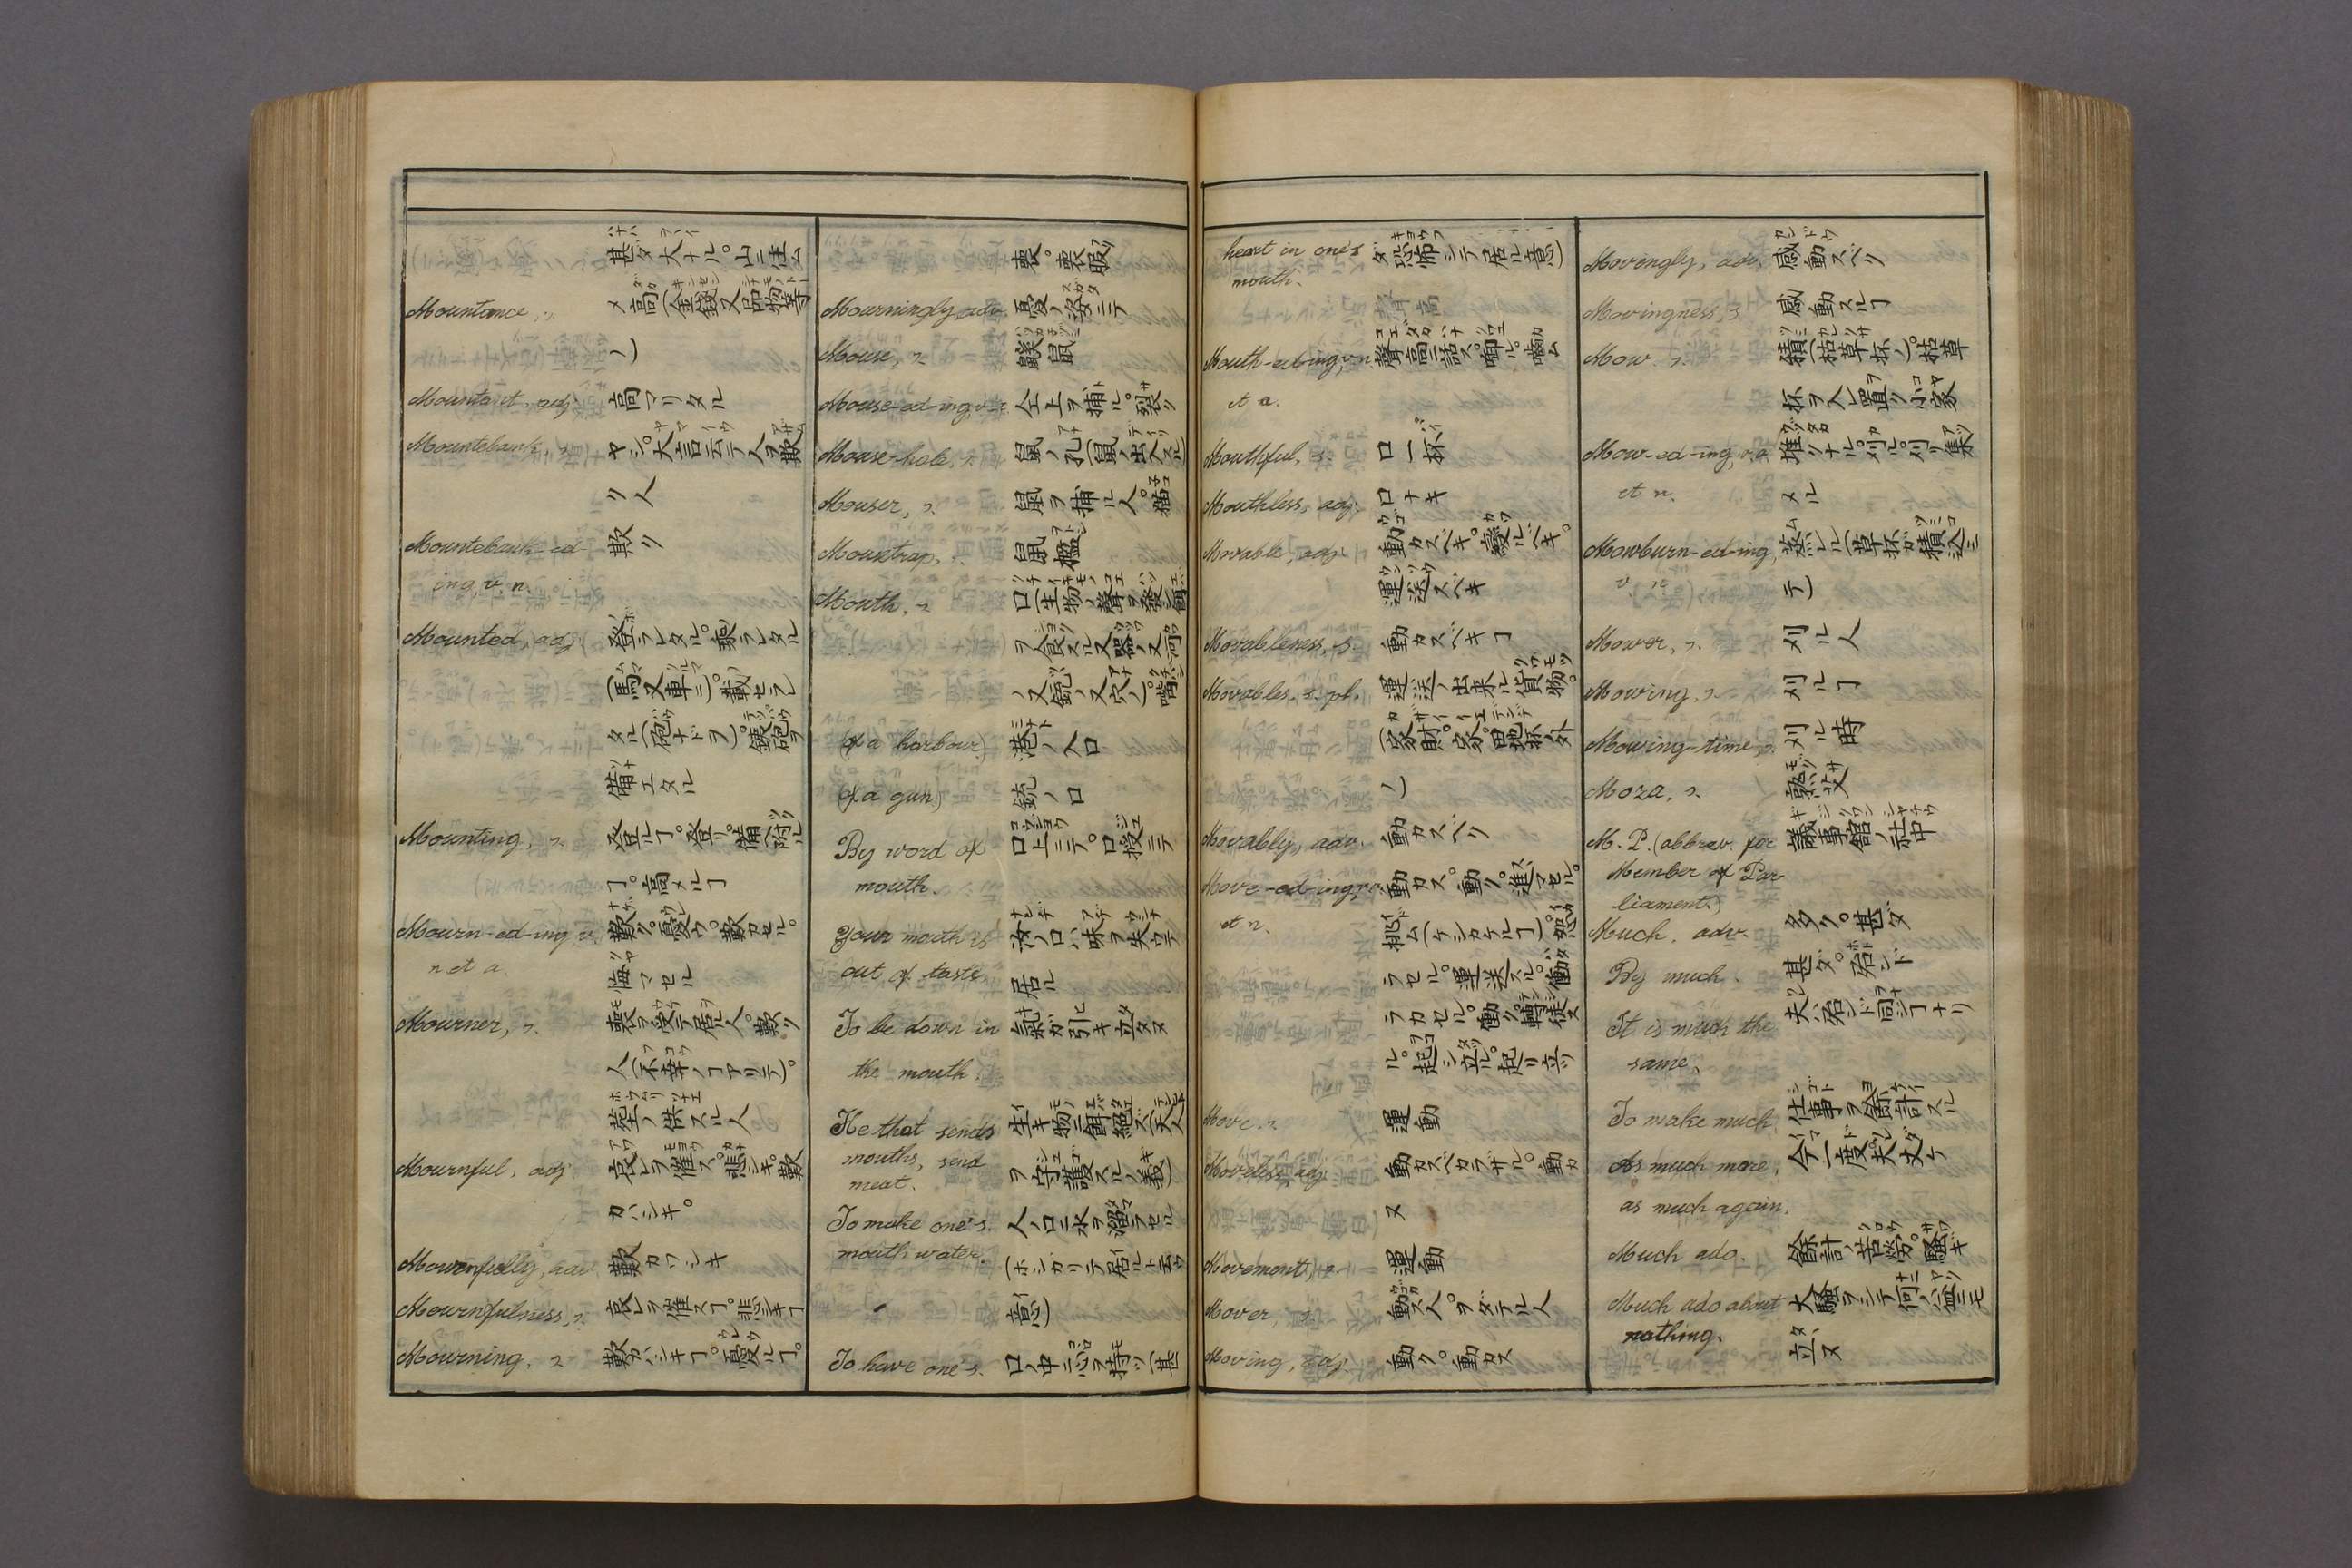 甚ダ大ナル。山ニ住ム
Mountance, s. 高(金錢又品物等
ノ)
Mountant, adj. 高マリタル
Mountebank, s. ヤシ。大言云テ人ヲ欺
ク人
Mountebank-ed- 欺ク
ing, v. n.
Mounted, adj. 登ラレタル。乘ラレタル
(馬又車ニ)。載セラレ
タル(砲ナドヲ)。鐵砲ヲ
備エタル
Mounting, s. 登ルヿ。登リ。備附ル
ヿ。高メルヿ
Mourn-ed-ing, v. 歎ク。憂ウ。歎カセル。
n. et a. 悔マセル
Mourner, s. 喪ヲ受テ居ル人。歎ク
人(不幸ノヿアリテ)。
葬ノ供スル人
Mournful, adj. 哀レヲ催ス。悲シキ。歎
カハシキ。
Mournfully, adv. 歎カワシキ
Mournfulness, s. 哀レヲ催スヿ。悲シキヿ
Mourning, s. 歎カハシキヿ。憂ルヿ。
喪。喪服
Mourningly, adv. 憂ノ姿ニテ
Mouse, s. 鼠
Mouse-ed-ing, v. 仝上ヲ捕ル。裂ク
Mouse-hole, s. 鼠ノ孔(鼠ノ出入スル)
Mouser, s. 鼠ヲ捕ル人。猫
Mousetrap, s. 鼠檻
Mouth, s. 口(生物ノ聲ヲ發シ餌
ヲ食スル又器ノ又河
ノ又銃ノ又穴ノ)。嘴
(of a harbour) 港ノ入口
(of a gun) 銃ノ口
By word of 口上ニテ。口授ニテ
mouth.
Your mouth is 汝ノ口ハ味ヲ失フテ
out of taste 居ル
To be down in 氣ガ引キ立タヌ
the mouth.
He that sends 生キ物ニ餌絶エズ(天人
mouths, send ヲ守護スルノ義)
meat.
To make one's 人ノ口ニ水ヲ溜マラセル
mouth water. (ホシカリテ居ルト云ウ
意)
To have one's 口ノ中ニ心ヲ持ツ(甚
heart in one's ダ恐怖シテ居ル意)
mouth.
Mouth-ed-ing, v. n. 聲高ニ話ス。噛ム
et a.
Mouthful, s. 口一杯
Mouthless, adj. 口ナキ
Movable, adj. 動カスベキ。變ルベキ。
運送スベキ
Movableness, s. 動カスベキヿ
Movables, s. pl. 運送ノ出来ル貨物。
(家財。家。田地抔ノ外
ノ)
Movably, adv. 動カスベク
Move-ed-ing, v. a. 動カス。動ク。進マセル。
et n. 挑ム(ケシカケルヿ)。怒
ラセル。運送スル。働
ラカセル。働ク。轉徒ス
ル。起シ立ル。起リ立ツ
Move, s. 運動
Moveless, adj. 動カスベカラザル。動カ
ヌ
Movement, s. 運動
Mover, s. 動カス人。ヲダテル人
Moving, adj. 動ク。動カス
Movingly, adv. 感動スベク
Movingness, s. 感動スルヿ
Mow, s. 積(枯草抔ノ)。枯草
抔ヲ入レ置ク小家
Mow-ed-ing, v. a. 堆クナル。刈ル。刈リ集
et n. メル
Mowburn-ed-ing, 蒸レル(草抔ガ積込ミ
v. n. テ)
Mower, s. 刈ル人
Mowing, s. 刈ルヿ
Mowing-time, s. 刈ル時
Moxa, s. 熟艾
M. P. (abbrev. for 議事舘ノ社中
Member of Par-
liament.)
Much, adv. 多ク。甚ダ
By much. 甚ダ。殆ンド
It is much the 夫ハ殆ンド同シヿナリ
same.
To make much. 仕事ヲ餘計スル
As much more, 今一度夫丈ケ
as much again.
Much ado. 餘計ノ苦勞。騷ギ
Much ado about 大騷ヲシテ何ノ益ニモ
nothing. 立タヌ